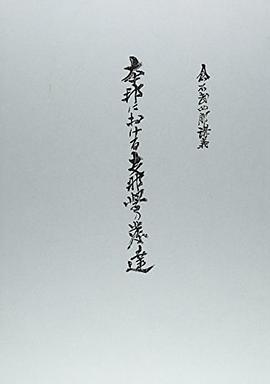 倉石武四郎講義
本邦における支那學の發達